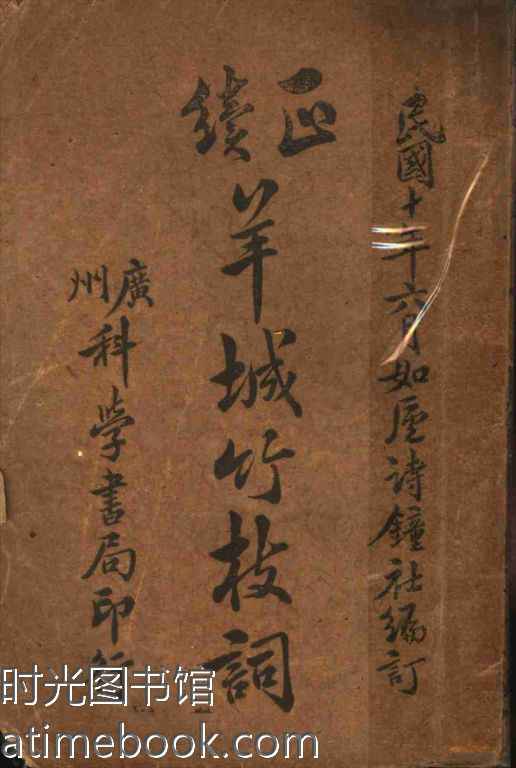 民國十年六月如廬诗鐘社编訂
正續
羊城竹枝詞
廣州
科學書局印行
时光图书馆
atimebook.com